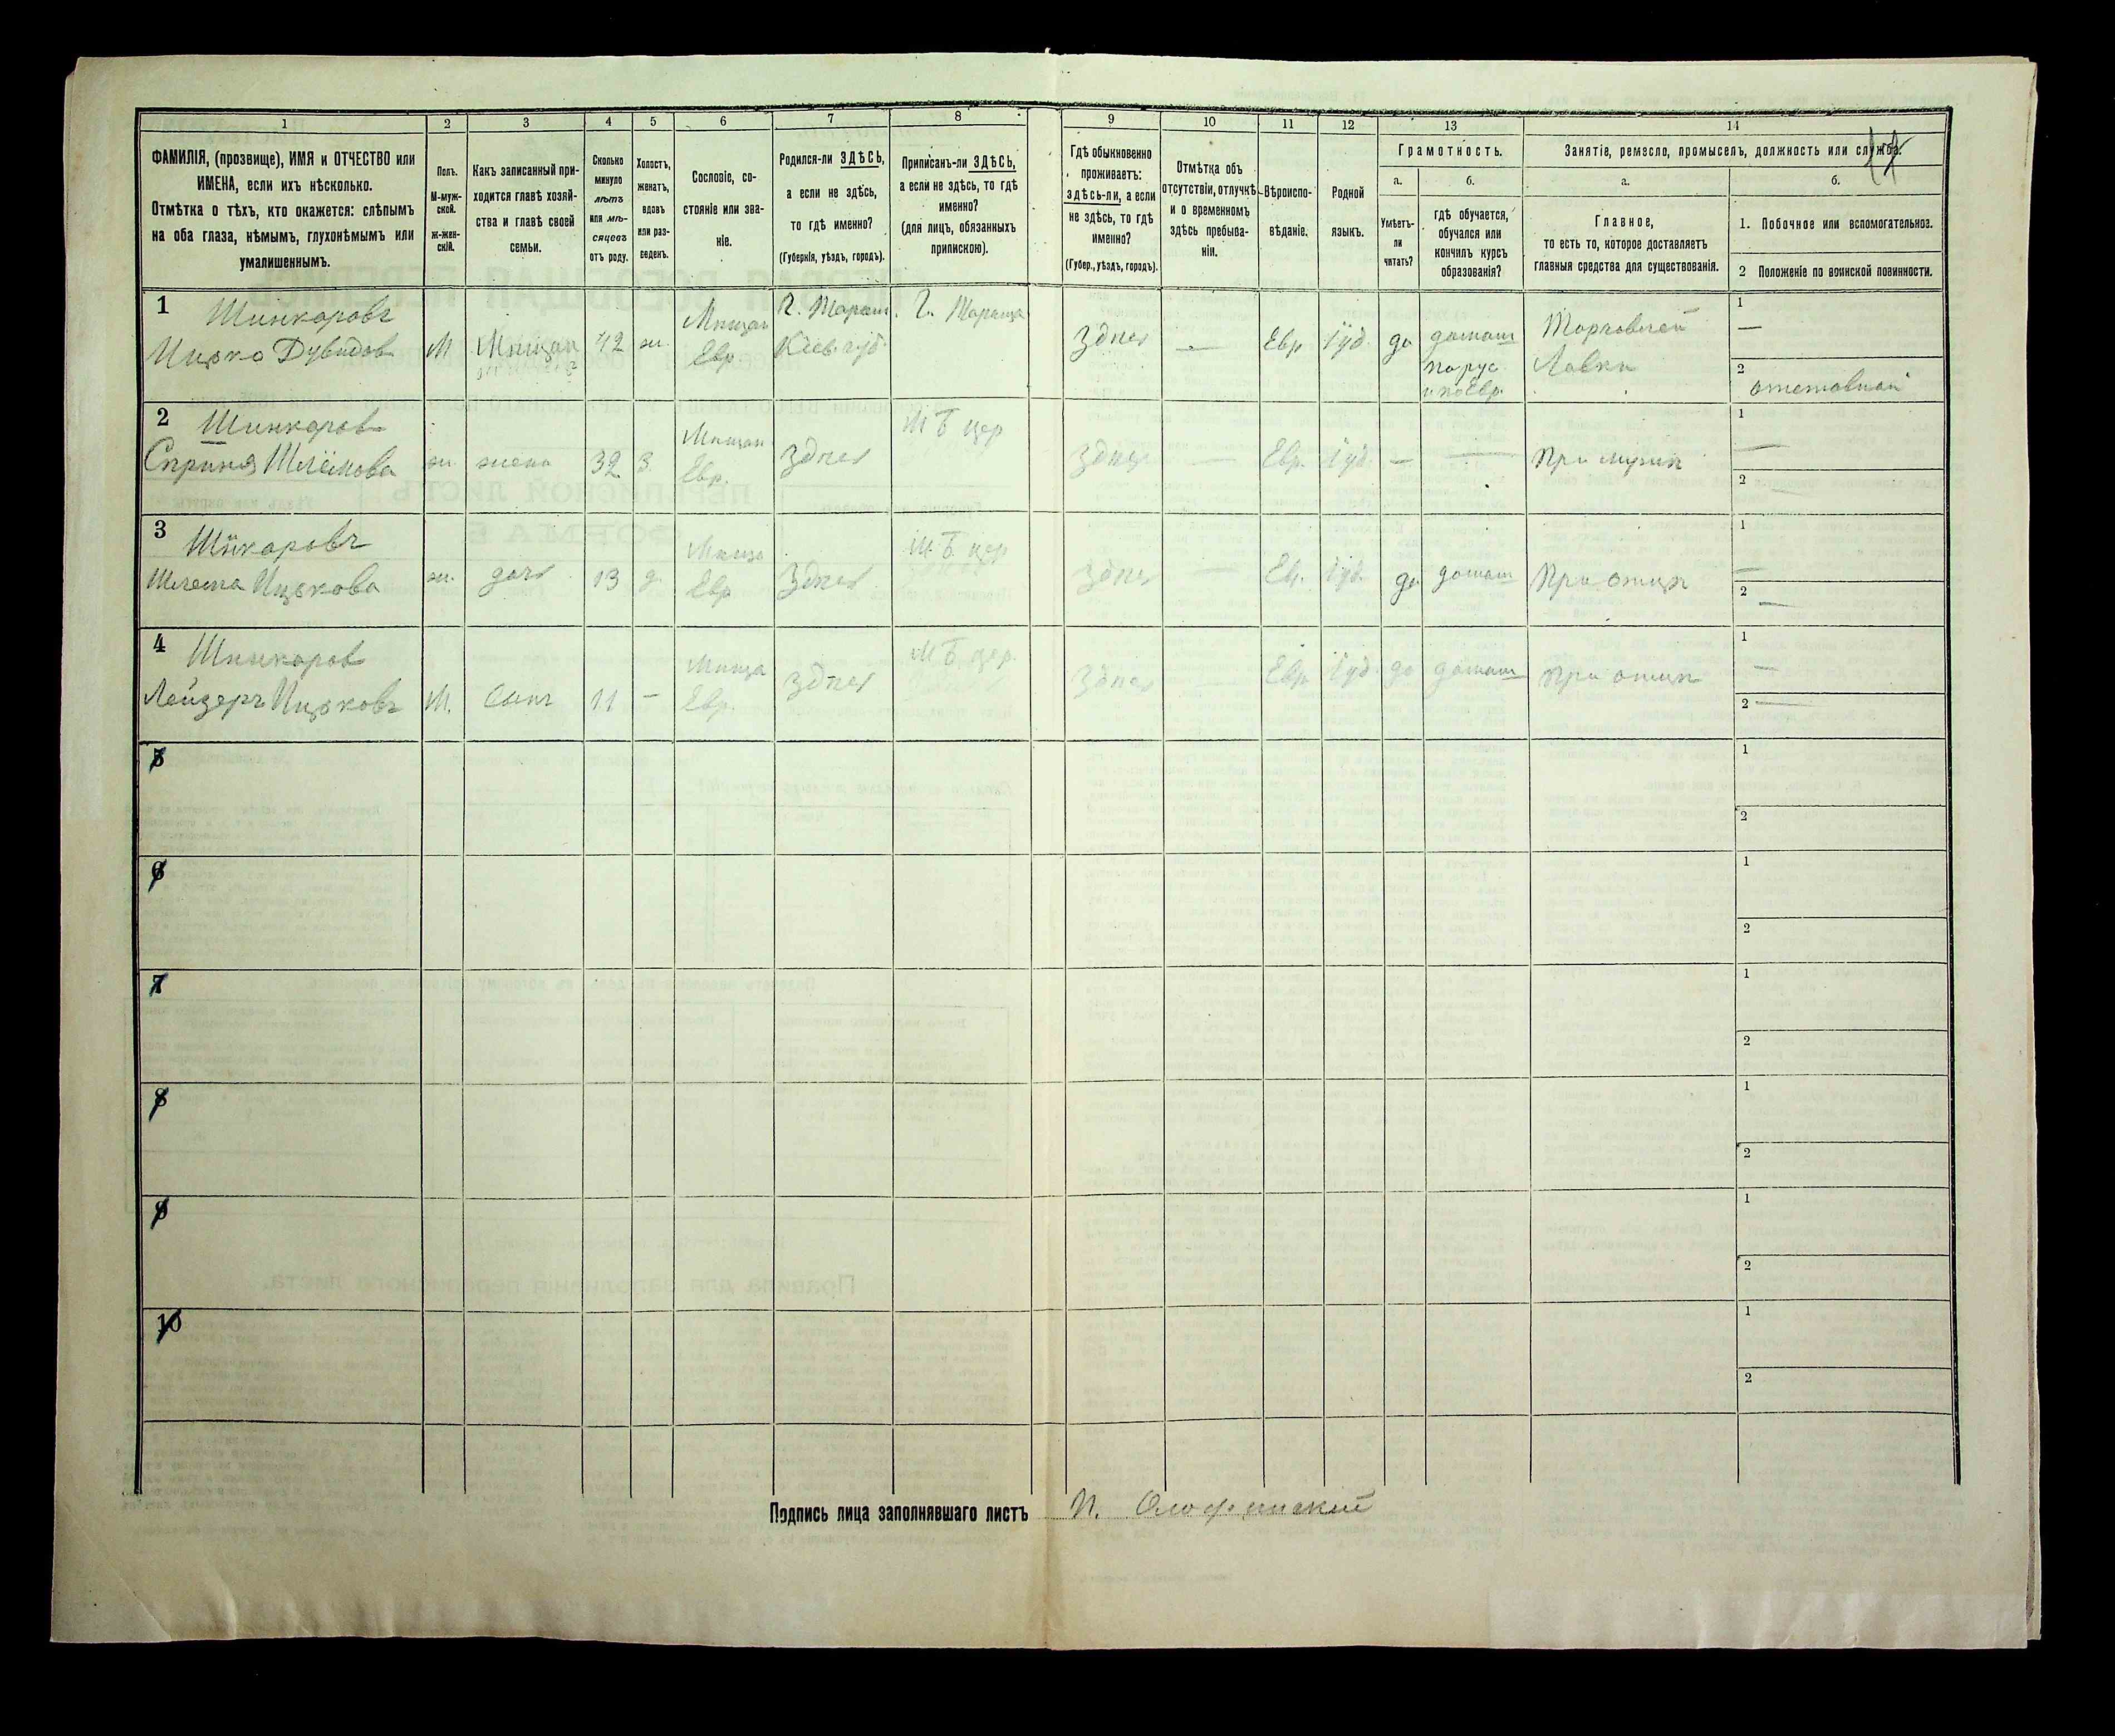 1
ФАМИЛІЯ, (прозвище), ИМЯ и ОТЧЕСТВО или
ИМЕНА, если ихъ нѣсколько.
Отмѣтка о тѣхъ, кто окажется: слѣпымъ
на оба глаза, нѣмымъ, глухонѣмымъ или
умалишеннымъ.
2
Полъ.
М-муж-
ской.
ж-жен-
скій.
3
Какъ записанный при-
ходится главѣ хозяй-
ства и главѣ своей
семьи.
4
Сколько
минуло
лѣтъ
или мѣ-
сяцевъ
отъ роду.
5
Холостъ,
женатъ,
вдовъ
или раз-
веденъ.
6
Сословіе, со-
стояніе или зва-
ніе.
7
Родился-ли ЗДѢСЬ,
а если не здѣсь,
то гдѣ именно?
(Губернія, уѣздъ, городъ).
8
Приписанъ-ли ЗДѢСЬ,
а если не здѣсь, то гдѣ
именно?
(для лицъ, обязанныхъ
припискою).
9
Гдѣ обыкновенно
проживаетъ:
здѣсь-ли, а если
не здѣсь, то гдѣ
именно?
(Губер., уѣздъ, городъ).
10
Отмѣтка объ
отсутствіи, отлучкѣ
и о временномъ
здѣсь пребыва-
ніи.
11
Вѣроиспо-
вѣданіе.
12
Родной
языкъ.
13
Грамотность.
а.
Умѣетъ-
ли
читать?
б.
гдѣ обучается,
обучался или
кончилъ курсъ
образованія?
14
Занятіе, ремесло, промыселъ, должность или служба.
а.
Главное,
то есть то, которое доставляетъ
главныя средства для существованія.
б.
1. Побочное или вспомогательное.
2 Положеніе по воинской повинности.
17
1 Шинкаровъ
Ицько Дувидов
М
Мищан
42
ж.
Мищан
Евр.
Г. Таращ.
Кіев. губ.
Г. Тараща
Здѣсь
—
Евр
Іуд.
да
домаш
по рус
и по Евр.
Торговлей
Лавки
1
—
2
отставной
2 Шинкаров
Сприня Шлёмова
ж.
жена
32
З.
Мищан
Евр.
Здѣсь
М Б цер
Здѣсь
—
Евр.
Іуд.
—
—
При мужѣ
1
—
2
—
3 Шинкаровъ
Шлема Ицькова
ж.
дочь
13
д.
Мища
Евр
Здѣсь
М. Б. цер
Здѣсь
—
Ев.
Іуд.
да
домаш
При отцѣ
1
—
2
—
4 Шинкаров
Лейзеръ Ицьковъ
М.
Сынъ
11
—
Мища
Евр.
Здѣсь
М Б. цер.
Здѣсь
—
Евр
Іуд.
да
домаш
при отцѣ
1
—
2
—
5
1
2
6
1
2
7
1
2
8
1
2
9
1
2
10
1
2
Подпись лица заполнявшаго листъ